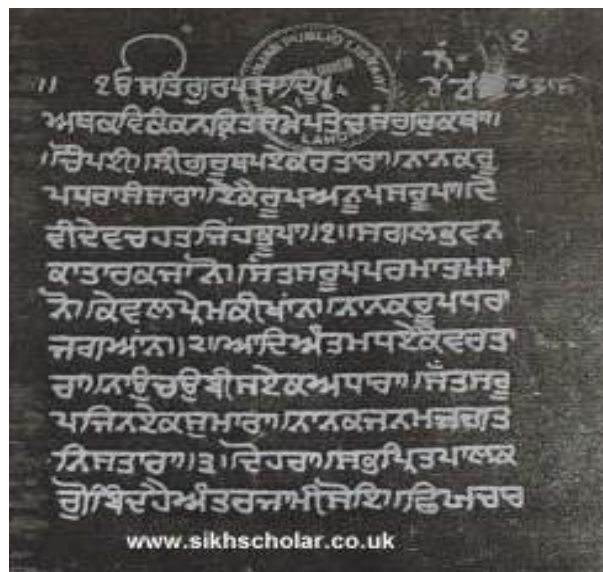 PUBLIC LIBRARY
੨
।। ੴ ਸਤਿਗੁਰਪ੍ਰਸਾਦਿ।।
।ਚੌਪਈ।।ਸ੍ਰੀਗੁਰੂ ਏਕੰਕਰਤਾਰਾ।।ਨਾਨਕਰੂ
ਪਧਰਾਸੰਸਾਰਾ।।ਏਕੈਰੂਪਅਨੂਪਸਰੂਪਾ।।ਦੇ
ਵੀਦੇਵਚਹਤਜਿੰਹਭੂਪਾ।।੧।।ਸਗਲਭਵਨ
ਕਾਤਾਰਕਜਾਨੋ।।ਸੰਤਸਰੂਪਪਰਮਾਤਮਮਾ
ਨੋ।।ਕੇਵਲਪ੍ਰੇਮਕੀਖਾਂਨ।।ਨਾਨਕਰੂਪਧਰਾ
ਜਗਆਂਨ।।੨।।ਆਦਿਅੰਤਮਧਏਕੈਵਰਤਾ
ਰਾ।।ਨਾਉਚਉਬੀਸਏਕਅਧਾਰਾ।।ਜੋਤਸਰੂ
ਪਜਿਨਏਕਸੁਮਾਰਾ।।ਨਾਨਕਜਨਮਜਗਤ
ਨਿਸਤਾਰਾ।।੩।।ਦੋਹਰਾ।।ਸਭਪ੍ਰਿਤਪਾਲਕ
ਗੋਬਿੰਦਹੈਅੰਤਰਜਾਮੀਸੋਇ।।
www.sikhscholar.co.uk